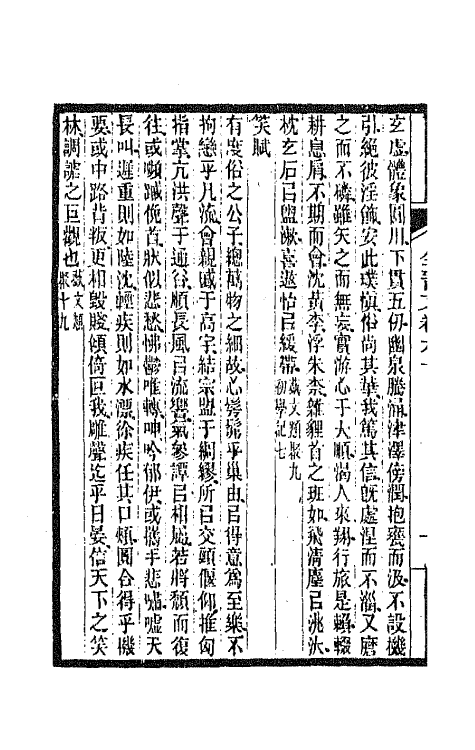 玄虛體象圓川下貫五仞幽泉騰涌津澤傍潤抱甕而汲不設機
引絕彼淫飾安此璞愼俗尚其華我篤其信旣處涅而不淄又磨
之而不磷雖矢之而無哀實游心于大順渴人來翔行旅是賴輟
耕息肩不期而會沈黃李浮朱柰雜貍首之班如飛淸塵㠯洮汰
枕玄石㠯盥漱喜遨怡㠯緩帶藝文類聚九初學記七
笑賦
有度俗之公子總萬物之細故心髣髴乎巢由㠯得意爲至樂不
拘戀乎凡流會親戚于高宇結宗盟于綢繆所㠯交頸偃仰推匈
指掌亢洪聲于通谷順長風㠯流響氣參譚㠯相屬若將頽而復
往或嚬蹙俛首狀似悲愁怫鬱唯轉呻吟郁伊或攜手悲嘯噓天
長叫遲重則如陸沈輕疾則如水漂徐疾任其口頰圓合得乎機
要或中路背叛更相毀賤傾倚叵我雕聲迄乎日晏信天下之笑
林調謔之巨觀也藝文類聚十九